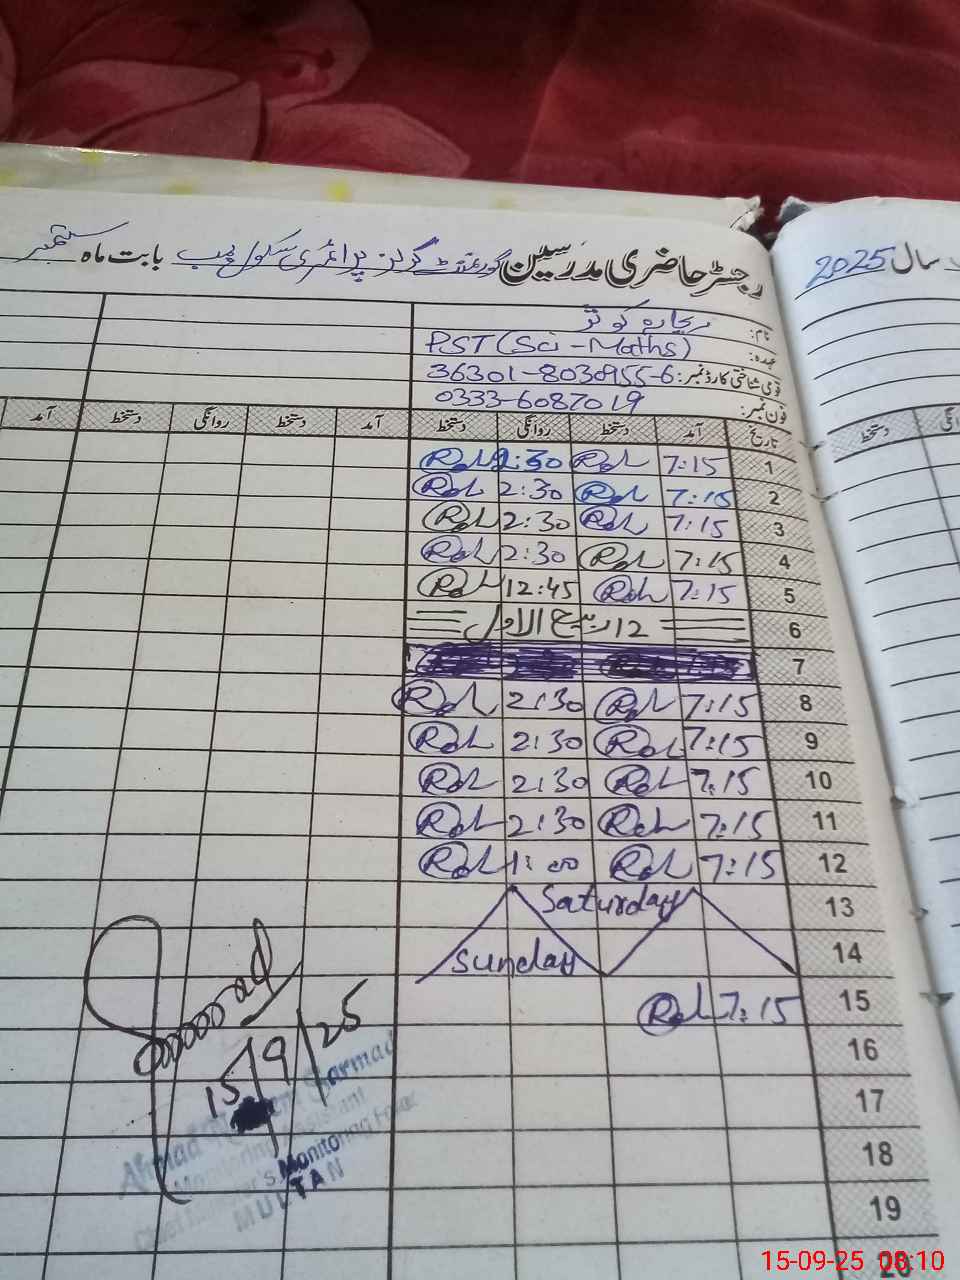 رجسٹر حاضری مدرسین گورنمنٹ گرلز پرائمری سکول بابت ماہ ستمبر
سال 2025
نام: ریحانہ کوثر
عہدہ: PST (Sci-Maths)
قومی شناختی کارڈ نمبر: 36301-8030955-6
فون نمبر: 0333-6087019
تاریخ آمد دستخط روانگی دستخط آمد دستخط روانگی دستخط آمد
دستخط
1 7:15 2:30
2 7:15 2:30
3 7:15 2:30
4 7:15 2:30
5 7:15 12:45
6 12 ربیع الاول
7
8 7:15 2:30
9 7:15 2:30
10 7:15 2:30
11 7:15 2:30
12 7:15 1:00
13 Saturday
14 Sunday
15 7:15
16
17
18
19
20
15/9/25
Ahmad Sarmad
Monitoring Assistant
Chief Minister's Monitoring Force
MULTAN
15-09-25 08:10